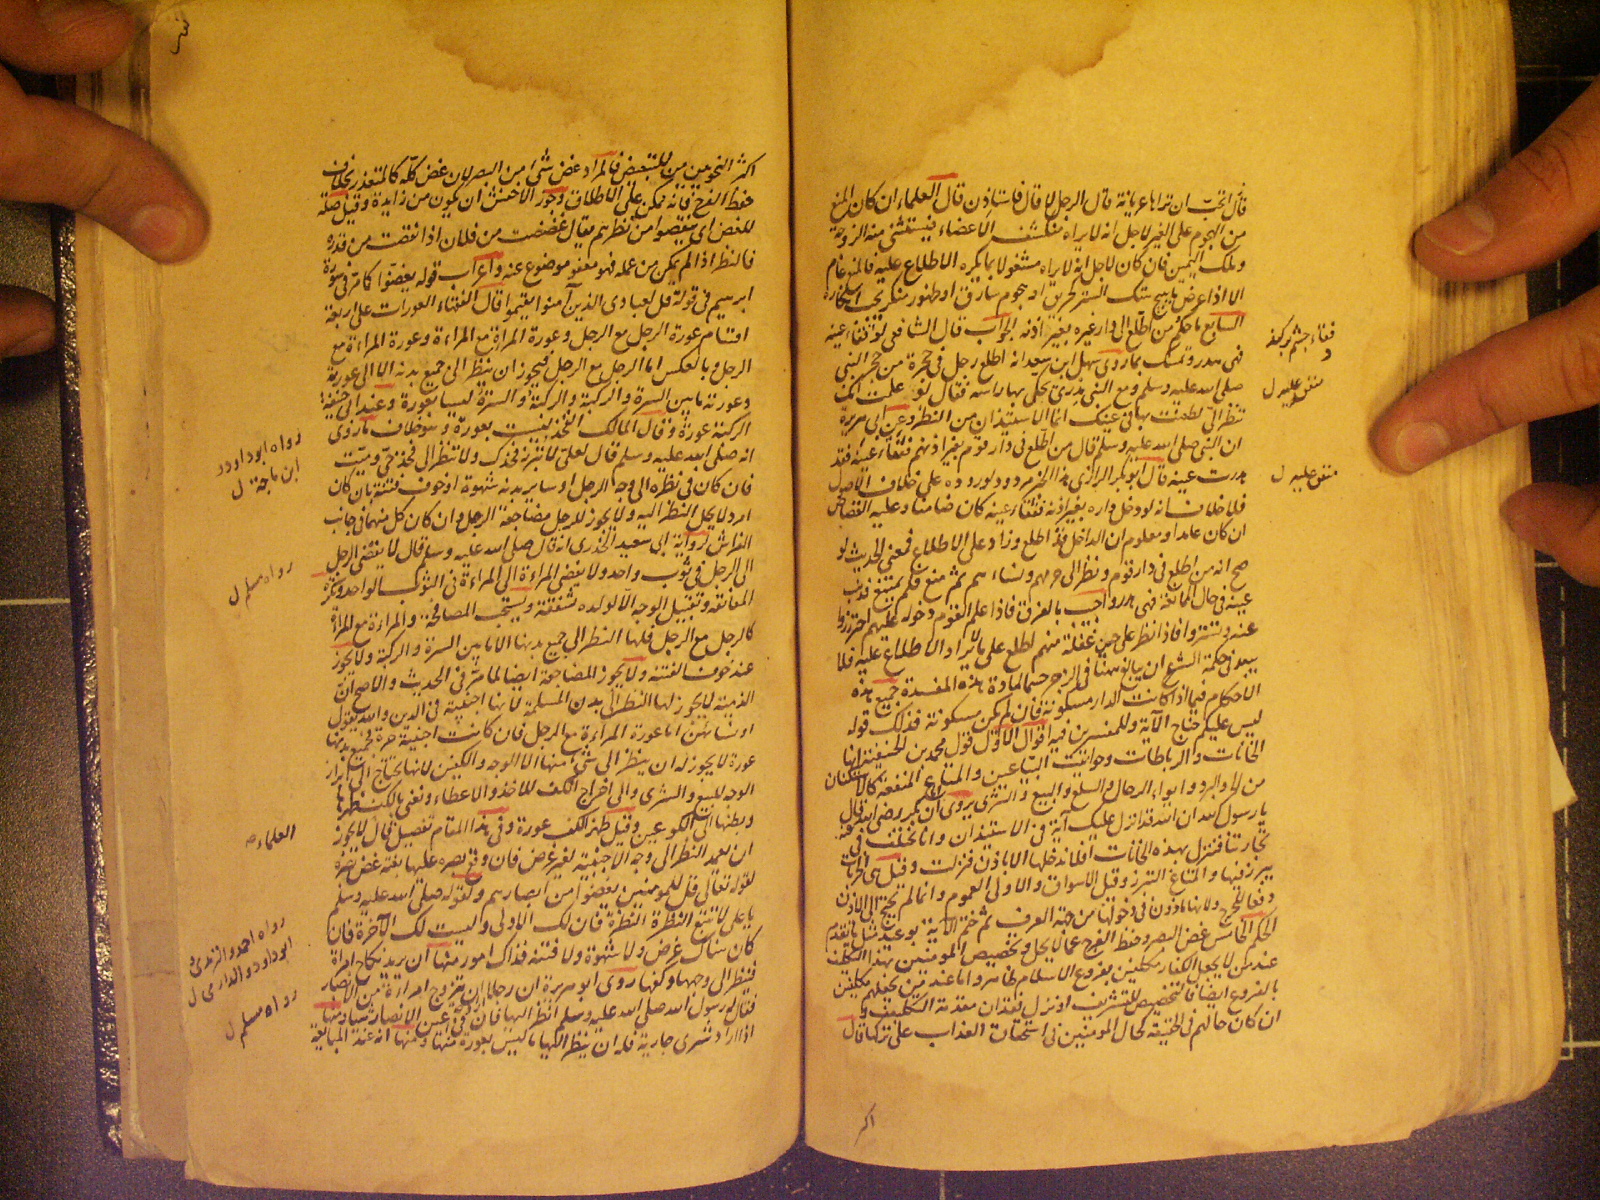 قال اتحب ان تراها عريانة قال الرجل لا قال فاستاذن قال العلماء ان كان المنع
من الهجوم على الغير لاجل انه لا يراه منكشف الاعضاء فيستثنى منه الزوجة
وملك اليمين فان كان لاجل انه لا يراه مشغولا بما يكره الاطلاع عليه فالمنع عام
الا اذا عرض ما يبيح هتك الستر كحريق او هجوم سارق او ظهور منكر
السابع ما حكم من اطلع الى دار غيره بغير اذنه الجواب قال الشافعي لو فقاء عينه
فهي هدر وتمسك بما روى سهل ابن سعد انه اطلع رجل في حجرة من حجر النبي
صلى الله عليه وسلم ومع النبي مدرى يحك بها راسه فقال لو علمت انك
تنظر الي لطعنت بها في عينك انما الاستيذان من النظر وعن ابي هريرة
ان النبي صلى الله عليه وسلم قال من اطلع في دار قوم بغير اذنهم ففقاء عينه فقد
هدرت عينه قال ابو بكر الرازي هذا الخبر مردود لوروده على خلاف الاصول
فلا خلاف انه لو دخل داره بغير اذنه ففقاء عينه كان ضامنا وعليه القصاص
ان كان عامدا ومعلوم ان الداخل قد اطلع وزاد على الاطلاع فمعنى الحديث لو
صح انه من اطلع في دار قوم ونظر الى حرمهم ونساءهم ثم منع فلم يمتنع فذهب
عينه في حال الممانعة فهي هدر واجب بالفرق فاذا علم القوم دخوله عليهم احترزوا
عنه وتستروا فاذا نظر على حين غفلة منهم اطلع على ما لا يراد الاطلاع عليه فلا
يبعد في حكمة الشرع ان يبالغ ههنا في الزجر حسما لمادة هذه المفسدة جميع هذه
الاحكام فيما اذا كانت الدار مسكونة فان لم يكن مسكونة فذلك قوله
ليس عليكم جناح الآية وللمفسرين فيه اقوال الاول قول محمد بن الحنفية انها
الخانات والرباطات وحوانيت البياعين والمتاع المنفعة كالاستكنان
من الحر والبرد وايواء الرحال والسلع والبيع والشرى يروى ان ابا بكر رضي الله عنه قال
يا رسول الله ان الله قد انزل عليك آية في الاستيذان وانا نختلف في
تجارتنا فننزل بهذه الخانات افلا ندخلها الا باذن فنزلت وقيل هي الخربات
يبرز فيها والمتاع التبرز وقيل الاسواق والاولى العموم وانما لم تحتج الى الاذن
دفعا للحرج ولانها ماذون في دخولها من جهة العرف ثم ختم الآية بوعيد مثل ما تقدم
الحكم الخامس غض البصر وحفظ الفرج عما لا يحل وتخصيص المومنين بهذا التكليف
عند من لا يجعل الكفار مكلفين بفروع الاسلام ظاهر واما عند من يجعلهم مكلفين
بالفروع ايضا فالتخصيص للتشريف او نزل فقدان مقدمة التكليف و
ان كان حالهم في الحقيقة كحال المومنين في استحقاق العذاب على تركها قال
فقاء چشم بركند
متفق عليه ل
متفق عليه ل
اكثر
اكثر النحويين من للتبعيض فالمراد غض شيء من البصر لان غض كله كالمتعذر بخلاف
حفظ الفرج فانه ممكن على الاطلاق وجوز الاخفش ان يكون من زايدة وقيل صلة
للغض اي ينقصوا من نظرهم يقال غضضت من فلان اذا نقصت من قدره
فالنظر اذا لم يمكن من عمله فهو معفو موضوع عنه واعراب قوله يغضوا كما مر في سورة
ابرهيم في قوله قل لعبادي الذين آمنوا يقيموا قال الفقهاء العورات على اربعة
اقسام عورة الرجل مع الرجل وعورة المراة مع المراءة وعورة المراءة مع
الرجل وبالعكس اما الرجل مع الرجل فيجوز ان ينظر الى جميع بدنه الا الى عورته
وعورته ما بين السرة والركبة والركبة والسرة ليسا بعورة وعند ابي حنيفة
الركبة عورة وقال المالك الفخذ ليست بعورة وهو خلاف ما روى
انه صلى الله عليه وسلم قال لعلي لا تبرز فخذك ولا تنظر الى فخذ حي وميت
فان كان في نظره الى وجه الرجل او ساير بدنه شهوة او خوف فتنة بان كان
امرد لا يحل النظر اليه ولا يجوز للرجل مضاجعة الرجل وان كان كل منهما في جانب
الفراش لرواية ابي سعيد الخدري انه قال صلى الله عليه وسلم قال لا يفضي الرجل
الى الرجل في ثوب واحد ولا يفضي المراءة الى المراءة في الثوب الواحد وتكره
المعانقة وتقبيل الوجه الا لولده شفقة ويستحب المصافحة والمراءة مع المراة
كالرجل مع الرجل فلها النظر الى جميع بدنها الا ما بين السرة والركبة ولا يجوز
عند خوف الفتنة ولا يجوز المضاجعة ايضا لما مر في الحديث والاصح ان
الذمية لا يجوز لها النظر الى بدن المسلمة لانها اجنبية في الدين والله يقول
او نسائهن اما عورة المراءة مع الرجل فان كانت اجنبية حرة فجميع بدنها
عورة لا يجوز له ان ينظر الى شيء منها الا الوجه والكفين لانها تحتاج الى ابراز
الوجه للبيع والشرى والى اخراج الكف للاخذ والاعطاء ونعني بالكف ظهرها
وبطنها الى الكوعين وقيل ظهر الكف عورة وفي هذا المقام تفصيل قال لا يجوز
ان يعمد النظر الى وجه الاجنبية لغير غرض فان وقع بصره عليها بغتة غض بصره
لقوله تعالى قل للمومنين يغضوا من ابصارهم ولقوله صلى الله عليه وسلم
يا علي لا تتبع النظرة النظرة فان لك الاولى وليست لك الآخرة فان
كان هناك غرض ولا شهوة ولا فتنة فذاك امور منها ان يريد نكاح امراة
فينظر الى وجهها وكفيها روى ابو هريرة ان رجلا ان يتزوج امراءة من الانصار
فقال له رسول الله صلى الله عليه وسلم انظر اليها فان في اعين الانصار شيئا ومنها
اذا اراد شرى جارية فله ان ينظر الى ما ليس بعورة منها ومنها انه عند المبايعة
رواه ابو داود و
ابن ماجة ل
رواه مسلم ل
العلماء صح
رواه احمد والترمذي و
ابو داود والدارمي ل
رواه مسلم ل